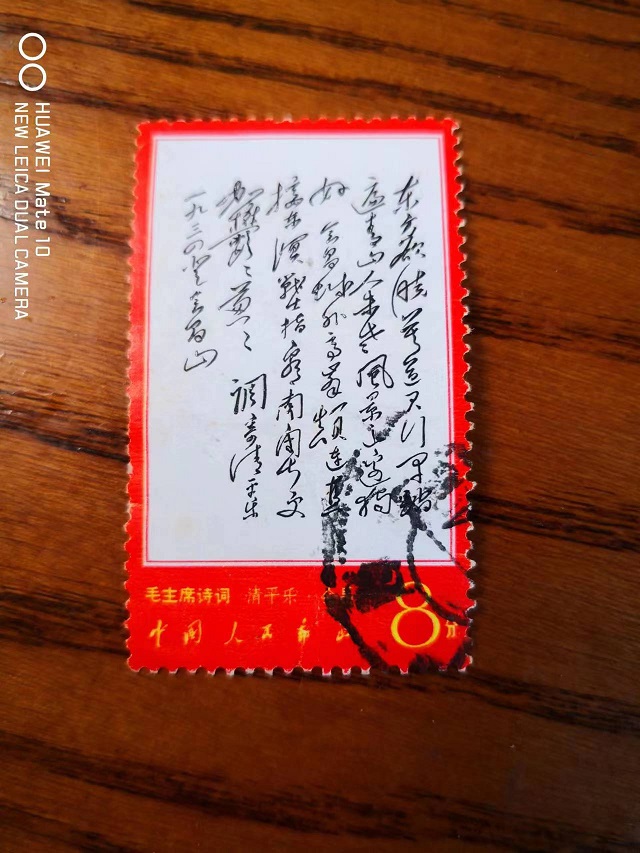 东方欲晓莫道君行早踏
遍青山人未老风景这边独
好会昌城外高峰颠连直
接东溟战士指看南粤更
加郁々葱々 调寄清平乐
一九三四登会昌山
毛主席诗词 清平乐
中国人民邮政 8分
HUAWEI Mate 10
NEW LEICA DUAL CAMERA